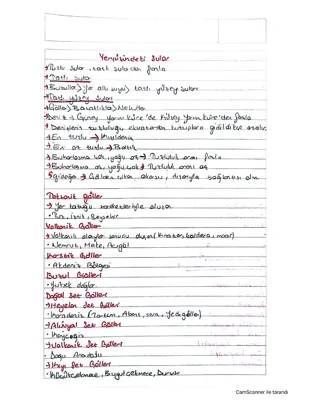 Yeryüzündeki Sular
→Tuzlu sular, tatlı sulardan fazla
→Tatlı sular
→Buzullar) Yer altı suyu) tatlı yüzey suları
→Tatlı yüzey suları
→Göller) Bataklıklar) Nehirler
→Deniz → Güney yarım küre'de, Kuzey yarım küre'den fazla
→Denizlerin tuzluluğu ekvatordan kutuplara gidildikçe azalır.
→En tuzlu → Kızıldeniz
→En az tuzlu → Baltık
→Buharlaşma çok, yağış az → Tuzluluk oranı fazla
→Buharlaşma az, yağış çok → Tuzluluk oranı az
Tektonik Göller
→Yer kabuğu hareketleriyle oluşur.
• Tuz, İznik, Beyşehir
Volkanik Göller
→Volkanik olaylar sonucu oluşur (krater, kaldera, maar)
• Nemrut, Meke, Acıgöl
Karstik Göller
• Akdeniz Bölgesi
Buzul Gölleri
• Yüksek dağlar
Doğal Set Gölleri
→Heyelan Set Gölleri
• Karadeniz (Tortum, Abant, Sera, Yedigöller)
→Alüvyal Set Gölleri
• Köyceğiz
→Volkanik Set Gölleri
• Doğu Anadolu
→Kıyı Set Gölleri
• Küçükçekmece, Büyükçekmece, Durusu
CamScanner ile tarandı